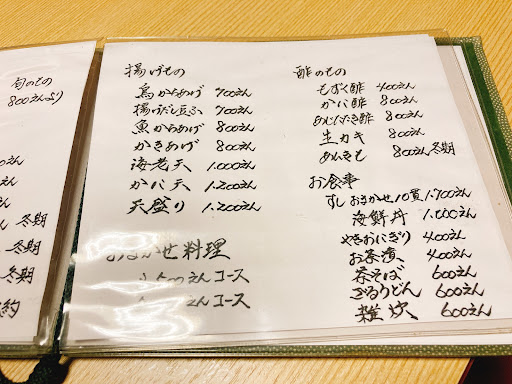 旬のもの
800えんより
えん
えん
えん
冬期
冬期
冬期
約
揚げもの
鳥からあげ 700えん
揚げだし豆ふ 700えん
魚からあげ 800えん
かきあげ 800えん
海老天 1.000えん
かに天 1.200えん
天盛り 1.200えん
おまかせ料理
えんコース
えんコース
酢のもの
もずく酢 400えん
かに酢 800えん
酢 800えん
生カキ 800えん
あんきも 800えん冬期
お食事
すしおまかせ10貫 1.700えん
海鮮丼 1.000えん
やきおにぎり 400えん
お茶漬 400えん
茶そば 600えん
ざるうどん 600えん
雑炊 600えん